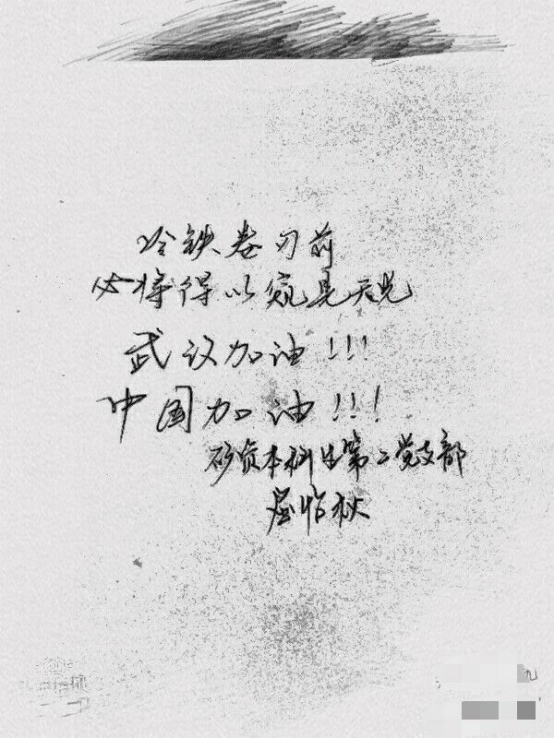 冷铁卷刃前
必将得以窥见天光
武汉加油!!!
中国加油!!!
矿资本科生第二党支部
屈怡秋